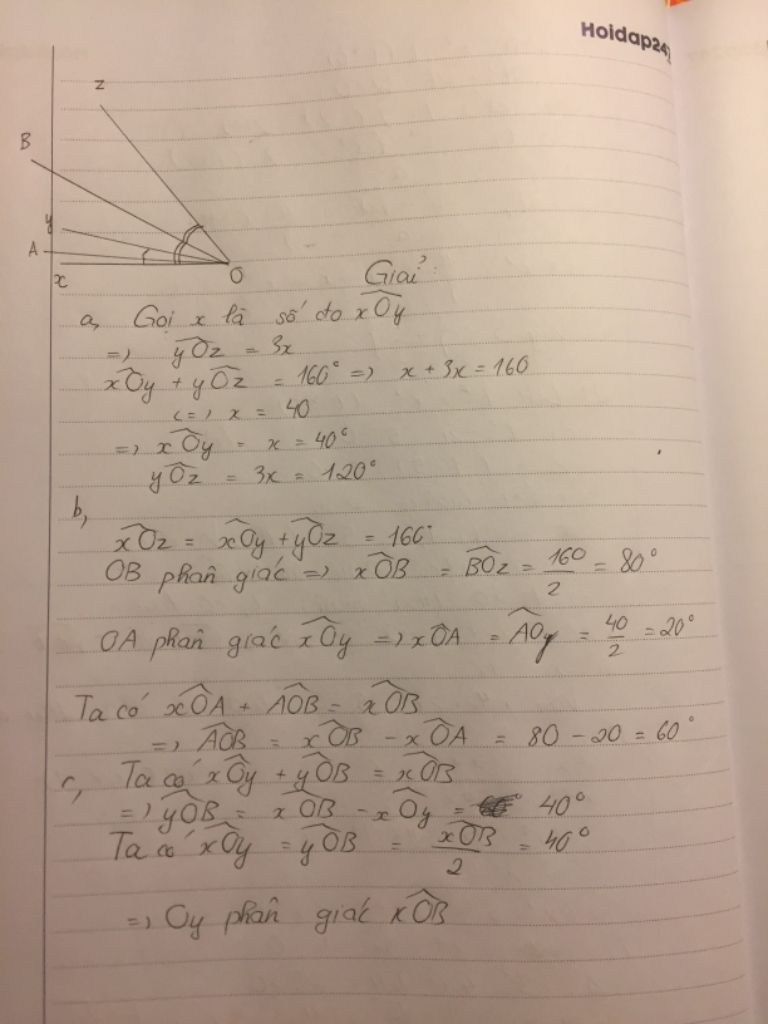 Hoidap247
z
B
y
A
x
O
Giải:
a, Gọi x là số đo xÔy
=> yÔz = 3x
xÔy + yÔz = 160° => x + 3x = 160
<=> x = 40
=> xÔy = x = 40°
yÔz = 3x = 120°
b,
xÔz = xÔy + yÔz = 160°
OB phân giác => xÔB = BÔz = 160/2 = 80°
OA phân giác xÔy => xÔA = AÔy = 40/2 = 20°
Ta có xÔA + AÔB = xÔB
=> AÔB = xÔB - xÔA = 80 - 20 = 60°
c, Ta có xÔy + yÔB = xÔB
=> yÔB = xÔB - xÔy = 40°
Ta có xÔy = yÔB = xÔB/2 = 40°
=> Oy phân giác xÔB